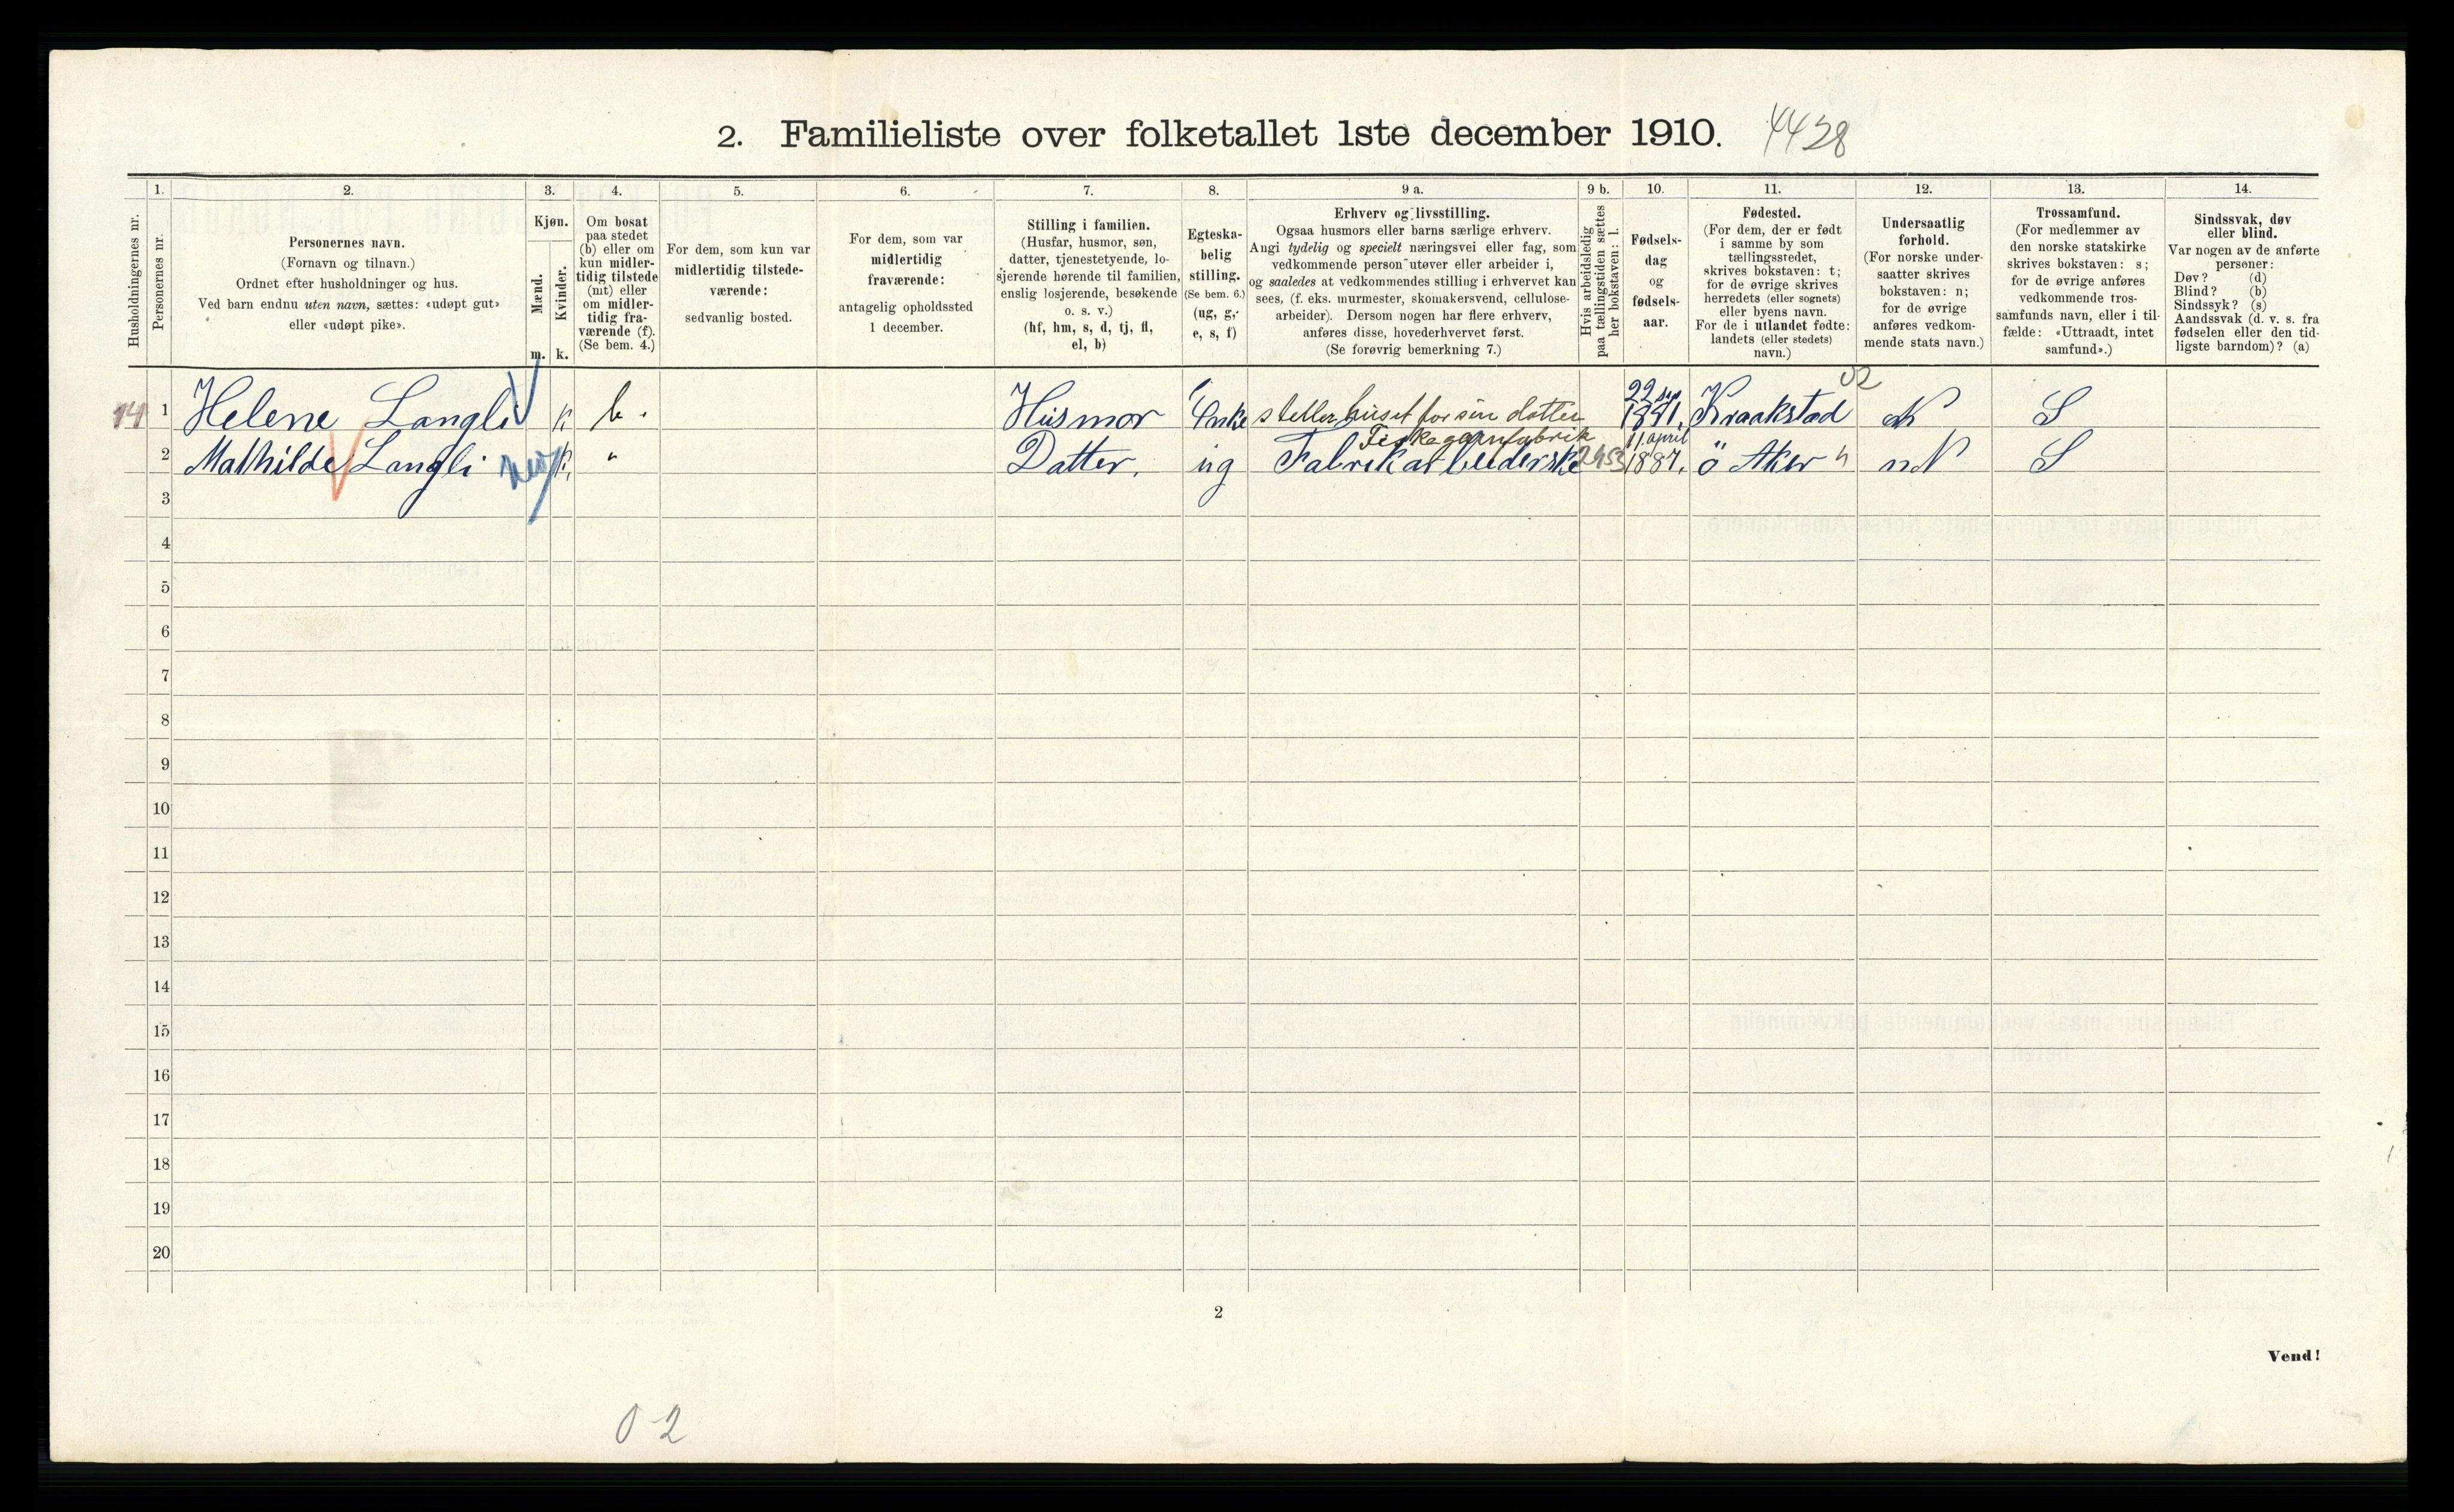 2. Familieliste over folketallet 1ste december 1910. 4428
Husholdningernes nr.
1.
Personernes nr.
2.
Personernes navn.
(Fornavn og tilnavn.)
Ordnet efter husholdninger og hus.
Ved barn endnu uten navn, sættes: «udøpt gut»
eller «udøpt pike».
3.
Kjøn.
Mænd.
Kvinder.
m. k.
4.
Om bosat
paa stedet
(b) eller om
kun midler-
tidig tilstede
(mt) eller
om midler-
tidig fra-
værende (f).
(Se bem. 4.)
5.
For dem, som kun var
midlertidig tilstede-
værende:
sedvanlig bosted.
6.
For dem, som var
midlertidig
fraværende:
antagelig opholdssted
1 december.
7.
Stilling i familien.
(Husfar, husmor, søn,
datter, tjenestetyende, lo-
sjerende hørende til familien,
enslig losjerende, besøkende
o. s. v.)
(hf, hm, s, d, tj, fl,
el, b)
8.
Egteska-
belig
stilling.
(Se bem. 6.)
(ug, g,
e, s, f)
9 a.
Erhverv og livsstilling.
Ogsaa husmors eller barns særlige erhverv.
Angi tydelig og specielt næringsvei eller fag, som
vedkommende person utøver eller arbeider i,
og saaledes at vedkommendes stilling i erhvervet kan
sees, (f. eks. murmester, skomakersvend, cellulose-
arbeider). Dersom nogen har flere erhverv,
anføres disse, hovederhvervet først.
(Se forøvrig bemerkning 7.)
9 b.
Hvis arbeidsledig
paa tællingstiden sættes
her bokstaven: l.
10.
Fødsels-
dag
og
fødsels-
aar.
11.
Fødested.
(For dem, der er født
i samme by som
tællingsstedet,
skrives bokstaven: t;
for de øvrige skrives
herredets (eller sognets)
eller byens navn.
For de i utlandet fødte:
landets (eller stedets)
navn.)
12.
Undersaatlig
forhold.
(For norske under-
saatter skrives
bokstaven: n;
for de øvrige
anføres vedkom-
mende stats navn.)
13.
Trossamfund.
(For medlemmer av
den norske statskirke
skrives bokstaven: s;
for de øvrige anføres
vedkommende tros-
samfunds navn, eller i til-
fælde: «Uttraadt, intet
samfund».)
14.
Sindssvak, døv
eller blind.
Var nogen av de anførte
personer:
Døv? (d)
Blind? (b)
Sindssyk? (s)
Aandssvak (d. v. s. fra
fødselen eller den tid-
ligste barndom)? (a)
14 1 Helene Langli k b. Husmor Enke steller huset for sin datter 22 sep Kraakstad 02 N S
Fiskegarnfabrik
2 Mathilde Langli k. " Datter. ug Fabrikarbeiderske 11. april 1887. ö Aker n N S
3
4
5
6
7
8
9
10
11
12
13
14
15
16
17
18
19
20
2
Vend!
0-2